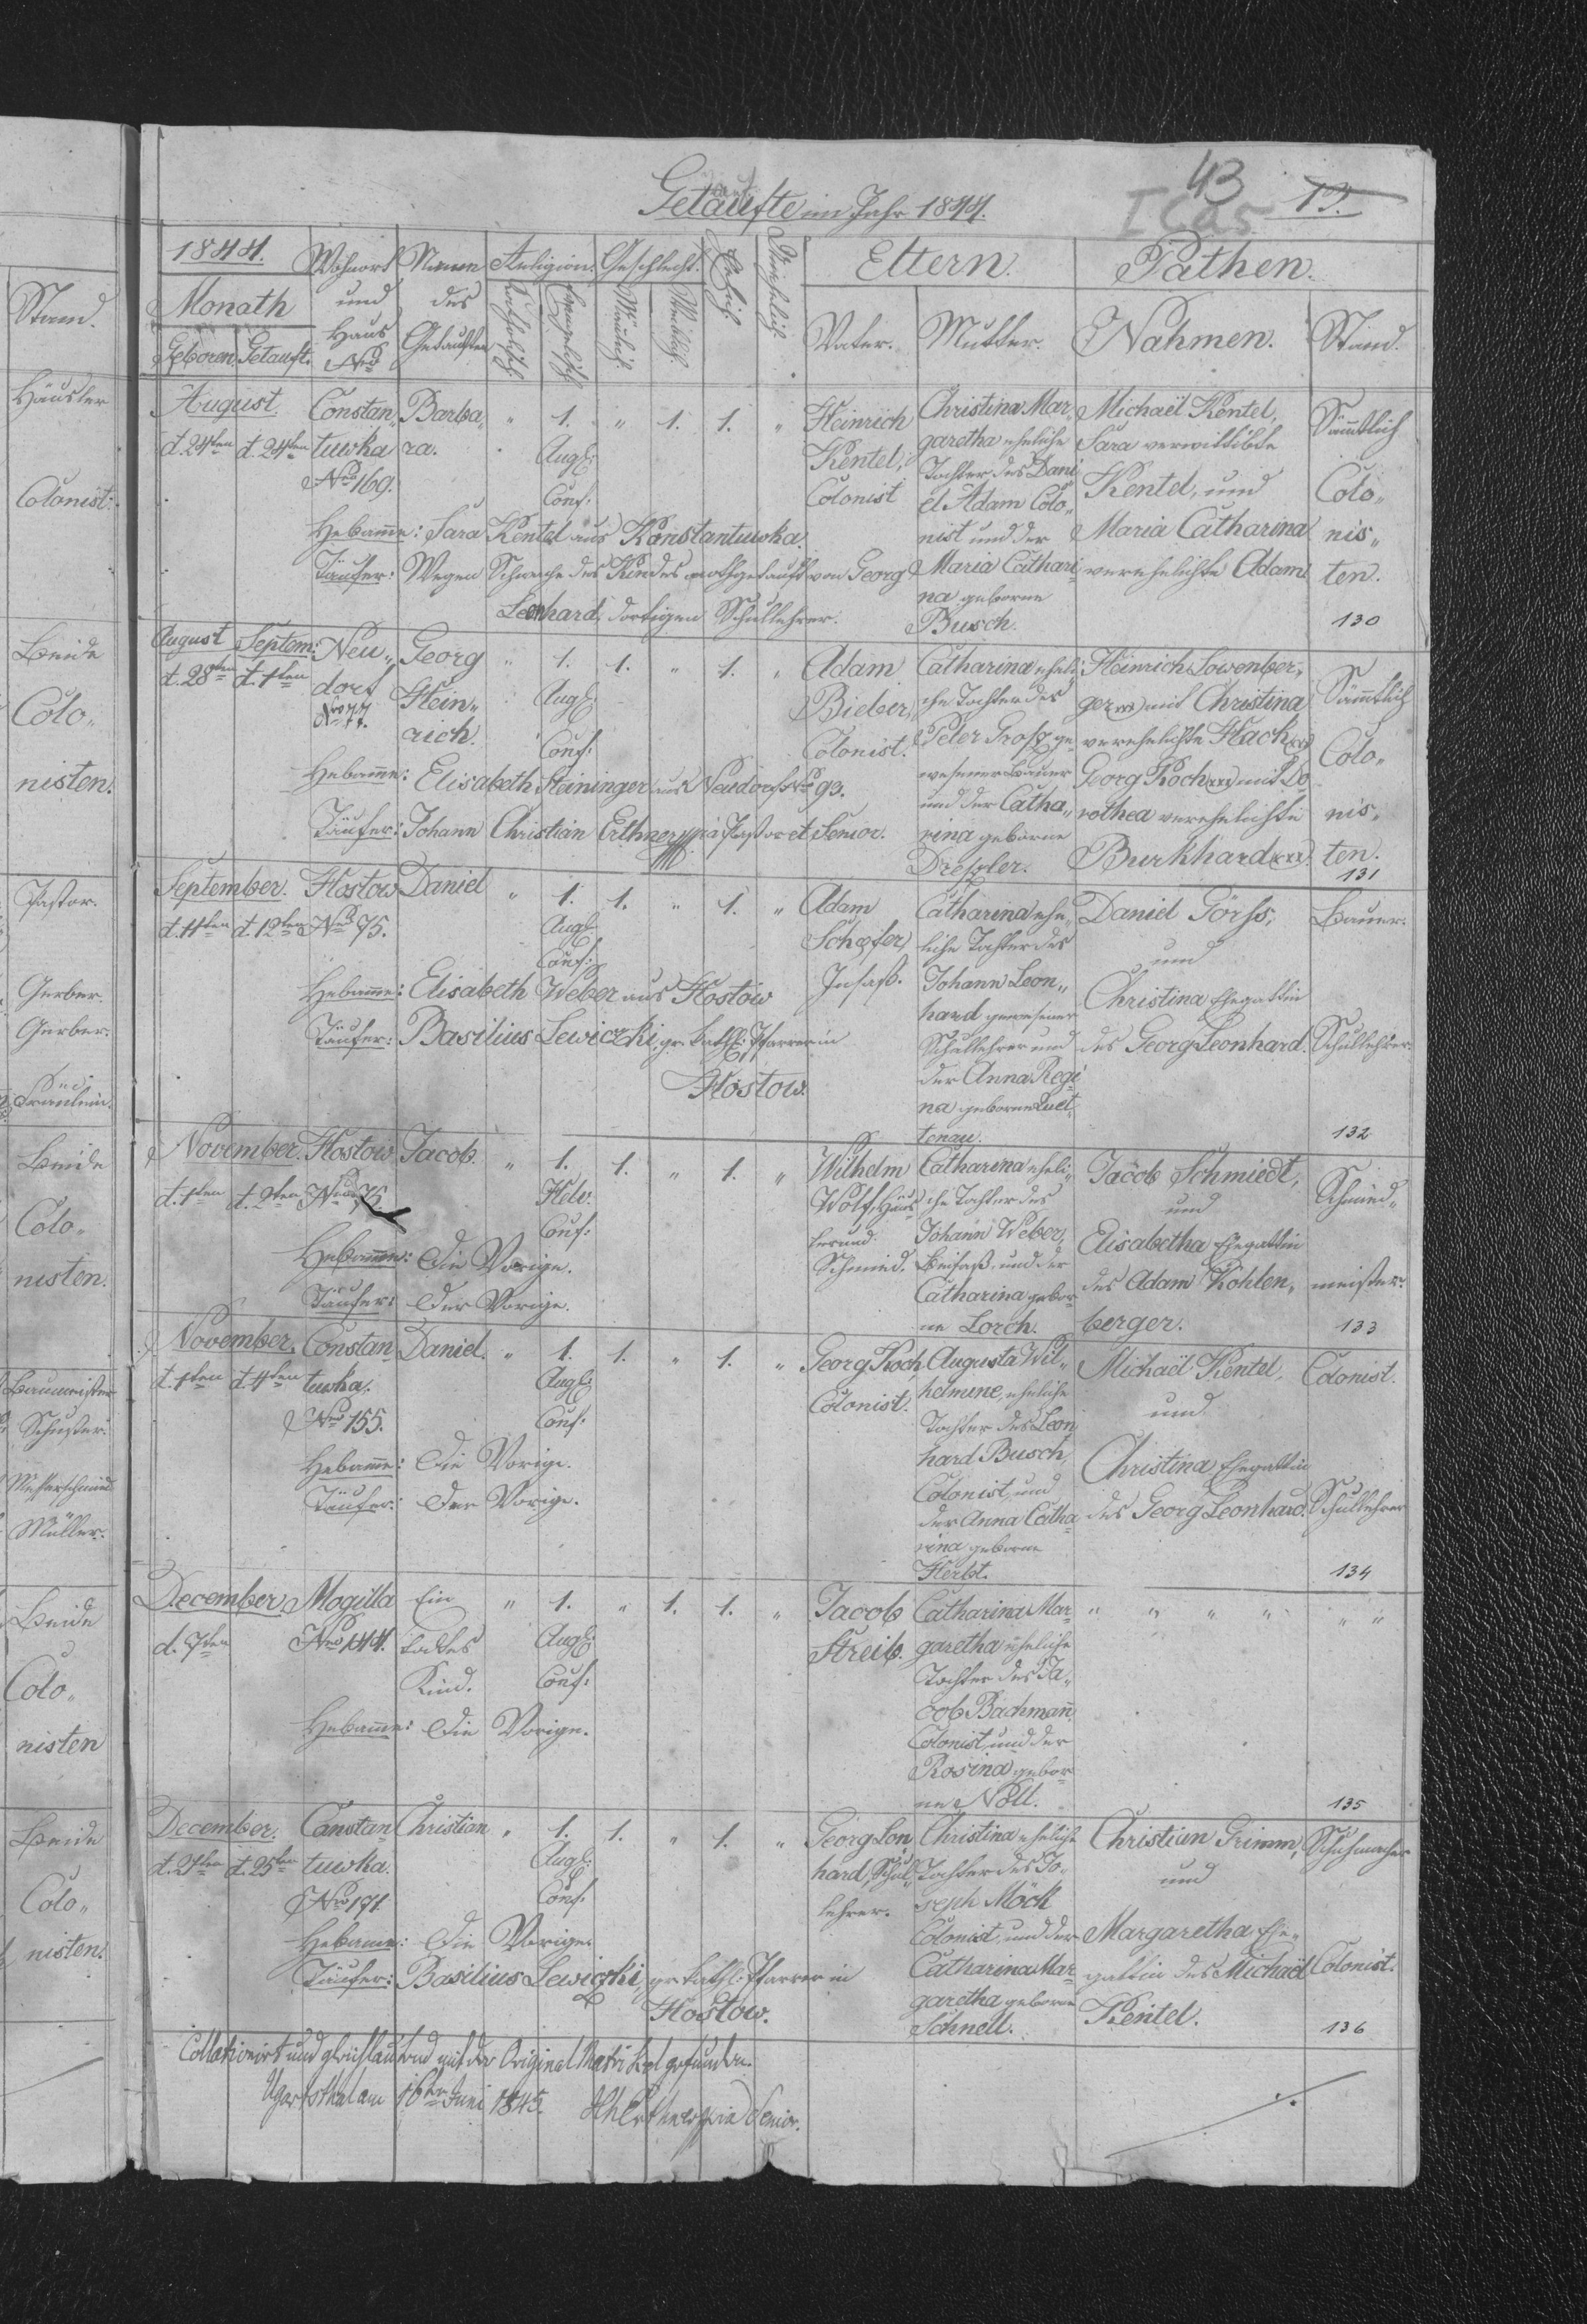 43
13.
I Cas
Getaufte im Jahr 1844.
1844.
Monath
Geboren. Getauft.
Wohnort
und
Haus
Nro
Name
des
Getauften
Religion.
Katholisch.
Evangelisch.
Geschlecht.
Männlich.
Weiblich.
Ehelich.
Unehelich.
Eltern.
Vater. Mutter.
Pathen.
Nahmen. Stand.
August
d. 24ten d. 24ten
Constan„
tuwka
Nro 169.
Barba„
ra.
" 1. " 1. 1. "
Augl:
Conf:
Heinrich
Kentel,
Colonist
Christina Mar„
garetha eheliche
Tochter des Dani„
el Adam Colo„
nist und der
Maria Cathari„
na geborne
Busch.
Michaël Kentel,
Sara verwittibte
Kentel, und
Maria Catharina
verehelichte Adam
Sämmtlich
Colo„
nis„
ten.
130
Hebamme: Sara Kentel aus Konstantuwka.
Täufer: Wegen Schwäche des Kindes nothgetauft von Georg
Leonhard, dortigen Schullehrer.
August Septem:
d. 28ten d. 1ten
Neu„
dorf
Nro 77.
Georg
Hein„
rich.
" 1. 1. " 1. "
Augl:
Conf:
Adam
Bieber,
Colonist.
Catharina eheli„
che Tochter des
Peter Grosz ge„
wesener Bauer
und der Catha„
rina geborne
Dreszler.
Heinrich Lowenber„
ger xxx mit Christina
verehelichte Hack xxx
Georg Koch xxx mit Do„
rothea verehelichte
Burkhard xxx.
Sämmtlich
Colo„
nis„
ten.
131
Hebamme: Elisabeth Steininger aus Neudorf Nro 93.
Täufer: Johann Christian Erthner mpia Pastor et Senior.
September.
d. 11ten d. 12ten
Hostow
Nro 75.
Daniel
" 1. 1. " 1. "
Augl:
Conf:
Adam
Schefer,
Insass.
Catharina ehe„
liche Tochter des
Johann Leon„
hard gewesener
Schullehrer und
der Anna Regi„
na geborne Luct„
tenay.
Daniel Görss,
und
Christina Ehegattin
des Georg Leonhard.
Bauer.
Schullehrer.
132
Hebamme: Elisabeth Weber aus Hostow
Täufer: Basilius Lewiczki, gr: kathl: Pfarrer in
Hostow.
November.
d. 1ten d. 2ten
Hostow
Jacob.
" 1. 1. " 1. "
Helv:
Conf:
Wilhelm
Wolf, Häus„
ler und
Schmied.
Catharina eheli„
che Tochter des
Johann Weber,
Beisass, und der
Catharina gebor„
ne Lorch.
Jacob Schmiedt,
und
Elisabetha Ehegattin
des Adam Kohlen„
berger.
Schmied„
meister.
133
Hebamme: Die Vorige.
Täufer: Der Vorige.
November.
d. 1ten d. 4ten
Constan„
tuwka.
Nro 155.
Daniel.
" 1. 1. " 1. "
Augl:
Conf:
Georg Koch,
Colonist.
Augusta Wil„
helmine, eheliche
Tochter des Leon„
hard Busch,
Colonist, und
der Anna Catha„
rina geborne
Herbt.
Michaël Kentel,
und
Christina Ehegattin
des Georg Leonhard.
Colonist.
Schullehrer
134
Hebamme: Die Vorige.
Täufer: Der Vorige.
December.
d. 7ten
Mogilla
Nro 144.
Ein
todtes
Kind.
" 1. " 1. 1. "
Augl:
Conf:
Jacob
Streib.
Catharina Mar„
garetha eheliche
Tochter des Ja„
cob Bachmann,
Colonist, und der
Rosina gebor„
ne Nöll.
" " " " " "
135
Hebamme: Die Vorige.
December.
d. 25ten
Constan„
tuwka.
Nro 171
Christian
" 1. 1. " 1. "
Augl:
Conf:
Georg Lon„
hard, Schul„
lehrer.
Christina eheliche
Tochter des Jo„
seph Möck
Colonist, und der
Catharina Mar„
garetha geborne
Schnell.
Christian Grimm,
und
Margaretha Ehe„
gattin des Michaël
Kentel.
Schuhmacher
Colonist.
136
Hebamme: Die Vorige.
Täufer: Basilius Lewiczki, gr: kathl: Pfarrer in
Hostow.
Collationirt und gleichlautend mit der Original Matrikel gefunden.
Ugartsthal am 16ten Juni 1845. Erthner mpia Senior.
Stand.
Häusler
Colonist.
Beide
Colo„
nisten.
Pastor.
Gerber.
Gerber.
Fräulein.
Beide
Colo„
nisten.
Baumeister
Schuster.
Messerschmied
Müller.
Beide
Colo„
nisten
Beide
Colo„
nisten.